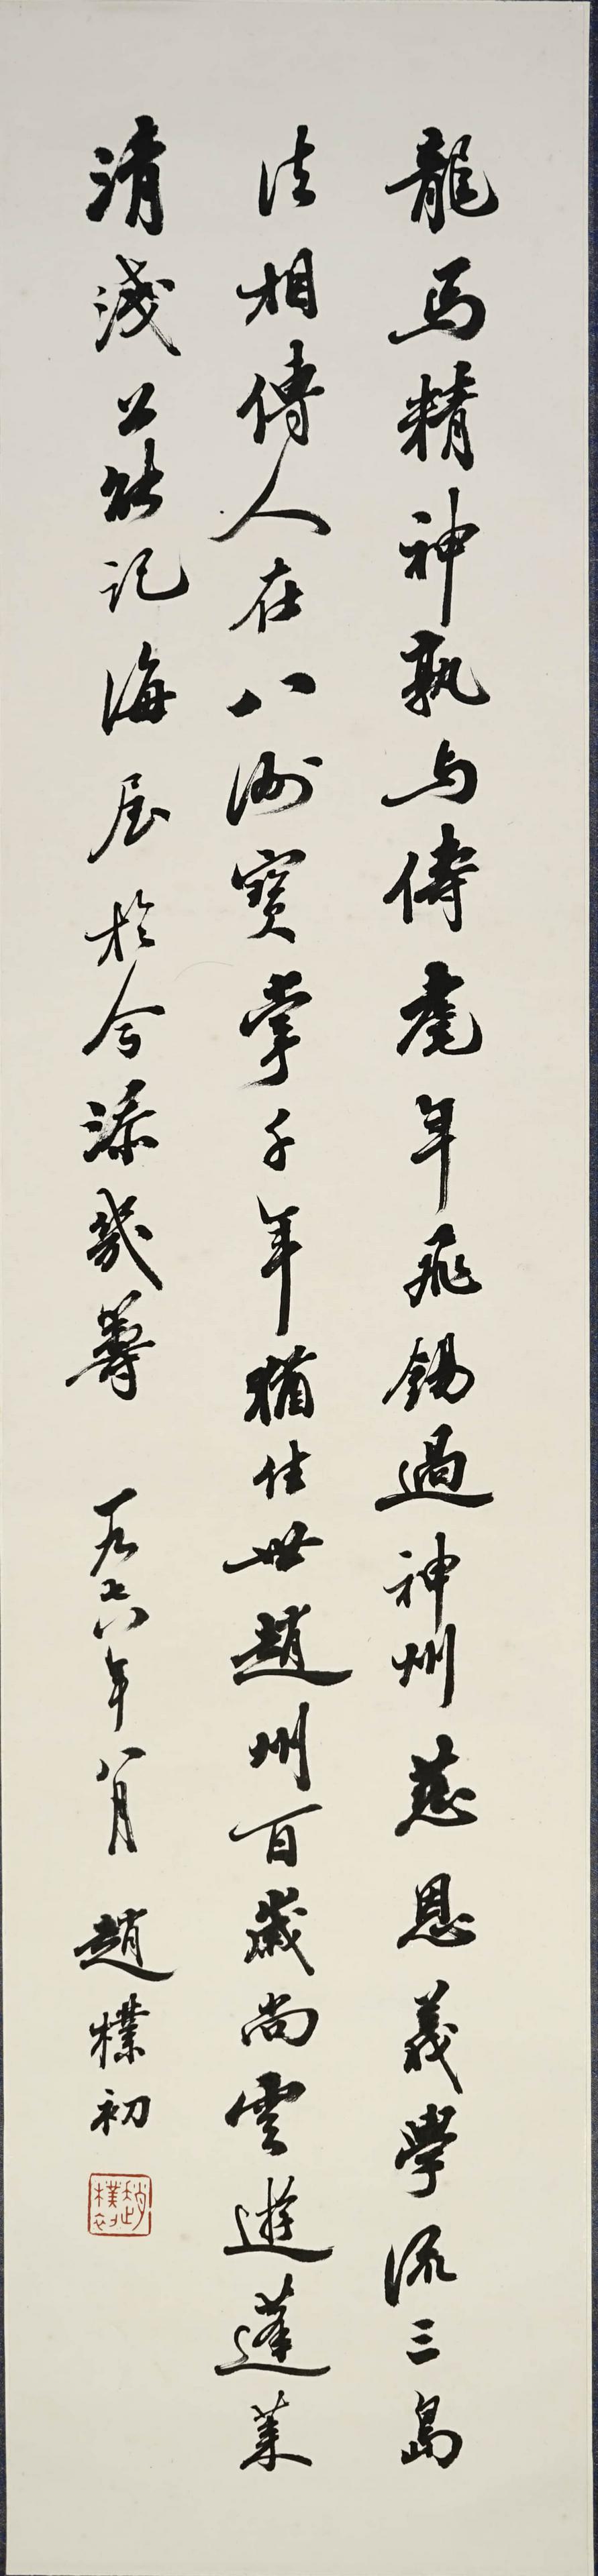 龍馬精神孰与儔耄年飛錫過神州慈恩義學流三島
法相傳人在八洲寶掌千年猶住世趙州百歲尚雲遊蓬萊
清淺公能記海屋於今添幾籌 一九七六年八月 趙樸初
趙樸初